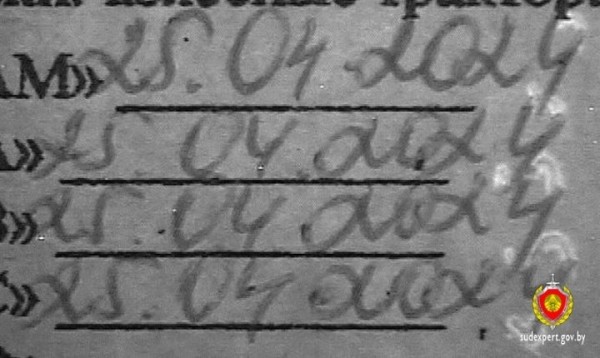 АМ» 25.04.2024
» 25.04.2024
В» 25.04.2024
С» 25.04.2024
sudexpert.gov.by